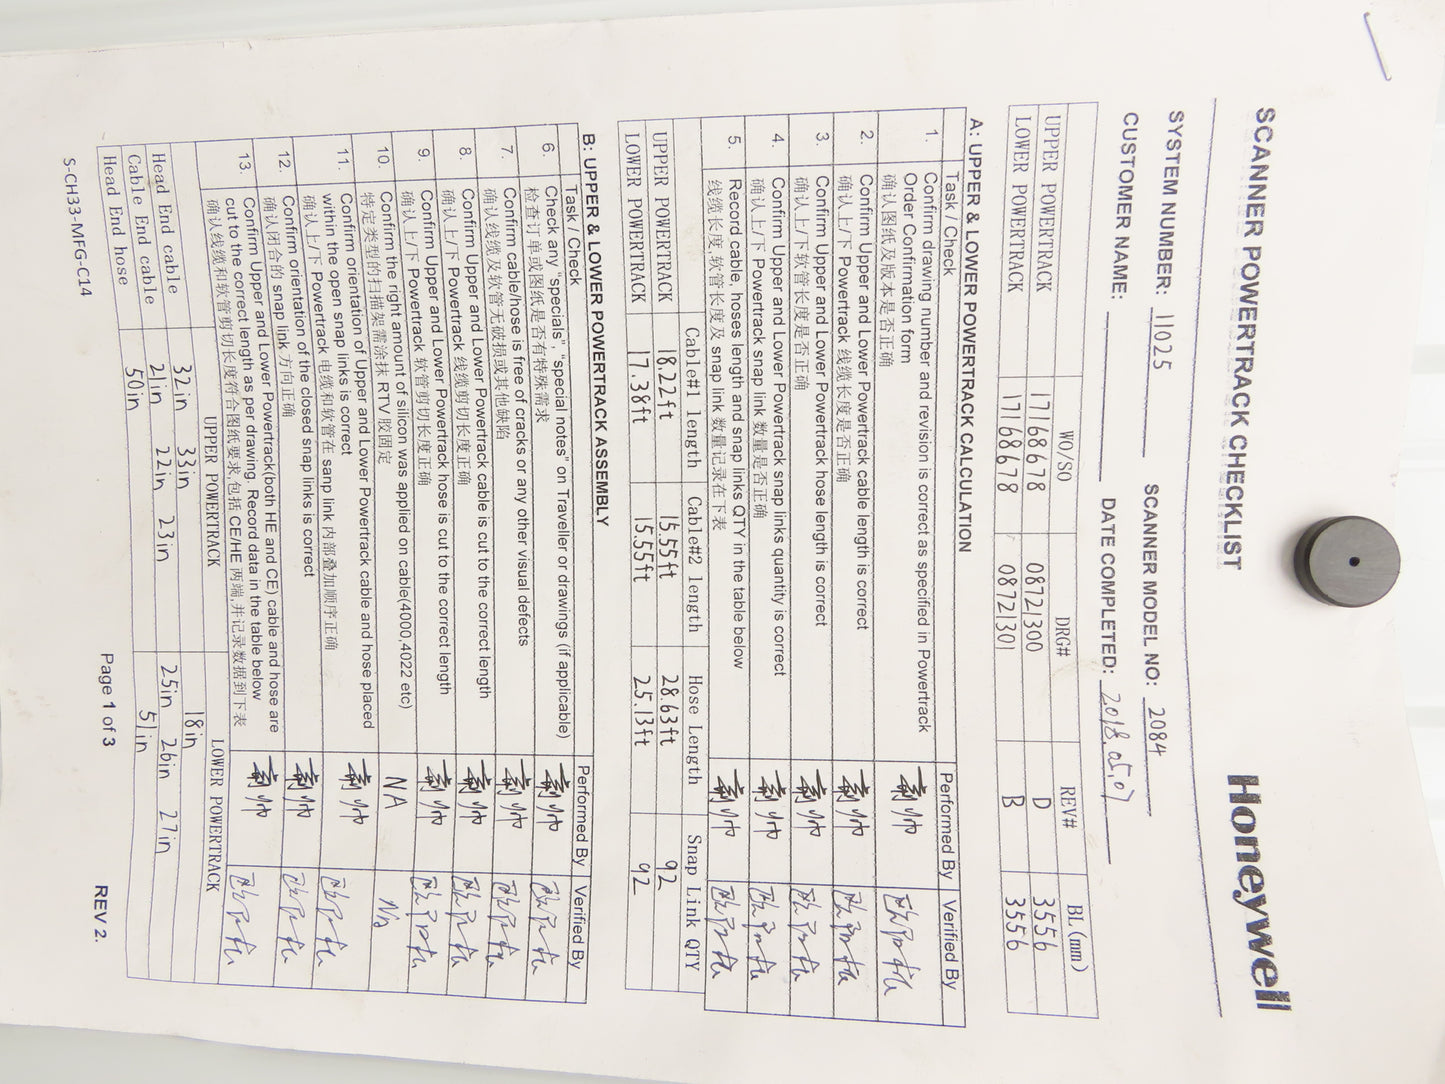 SCANNER POWERTRACK CHECKLIST Honeywell
SYSTEM NUMBER: 11025 SCANNER MODEL NO: 2084
CUSTOMER NAME: DATE COMPLETED: 2018.05.07
WO/SO DRG# REV# BL(mm)
UPPER POWERTRACK 17168678 08721300 D 3556
LOWER POWERTRACK 17168678 08721301 B 3556
A: UPPER & LOWER POWERTRACK CALCULATION
Task / Check Performed By Verified By
1. Confirm drawing number and revision is correct as specified in Powertrack
Order Confirmation form
确认图纸及版本是否正确
2. Confirm Upper and Lower Powertrack cable length is correct
确认上/下 Powertrack 线缆长度是否正确
3. Confirm Upper and Lower Powertrack hose length is correct
确认上/下软管长度是否正确
4. Confirm Upper and Lower Powertrack snap links quantity is correct
确认上/下 Powertrack snap link 数量是否正确
5. Record cable, hoses length and snap links QTY in the table below
线缆长度,软管长度及 snap link 数量记录在下表
Cable#1 length Cable#2 length Hose Length Snap Link QTY
UPPER POWERTRACK 18.22ft 15.55ft 28.63ft 92
LOWER POWERTRACK 17.38ft 15.55ft 25.13ft 92
B: UPPER & LOWER POWERTRACK ASSEMBLY
Task / Check Performed By Verified By
6. Check any "specials", "special notes" on Traveller or drawings (if applicable)
检查订单或图纸是否有特殊需求
7. Confirm cable/hose is free of cracks or any other visual defects
确认线缆及软管无破损或其他缺陷
8. Confirm Upper and Lower Powertrack cable is cut to the correct length
确认上/下 Powertrack 线缆剪切长度正确
9. Confirm Upper and Lower Powertrack hose is cut to the correct length
确认上/下 Powertrack 软管剪切长度正确
10. Confirm the right amount of silicon was applied on cable(4000,4022 etc) NA NA
特定类型的扫描架需涂抹 RTV 胶固定
11. Confirm orientation of Upper and Lower Powertrack cable and hose placed
within the open snap links is correct
确认上/下 Powertrack 电缆和软管在 sanp link 内部叠加顺序正确
12. Confirm orientation of the closed snap links is correct
确认闭合的 snap link 方向正确
13. Confirm Upper and Lower Powertrack(both HE and CE) cable and hose are
cut to the correct length as per drawing. Record data in the table below
确认线缆和软管剪切长度符合图纸要求,包括 CE/HE 两端,并记录数据到下表
UPPER POWERTRACK LOWER POWERTRACK
Head End cable 32in 33in 18in
Cable End cable 21in 22in 23in 25in 26in 27in
Head End hose 50in 51in
S-CH33-MFG-C14 Page 1 of 3 REV 2.